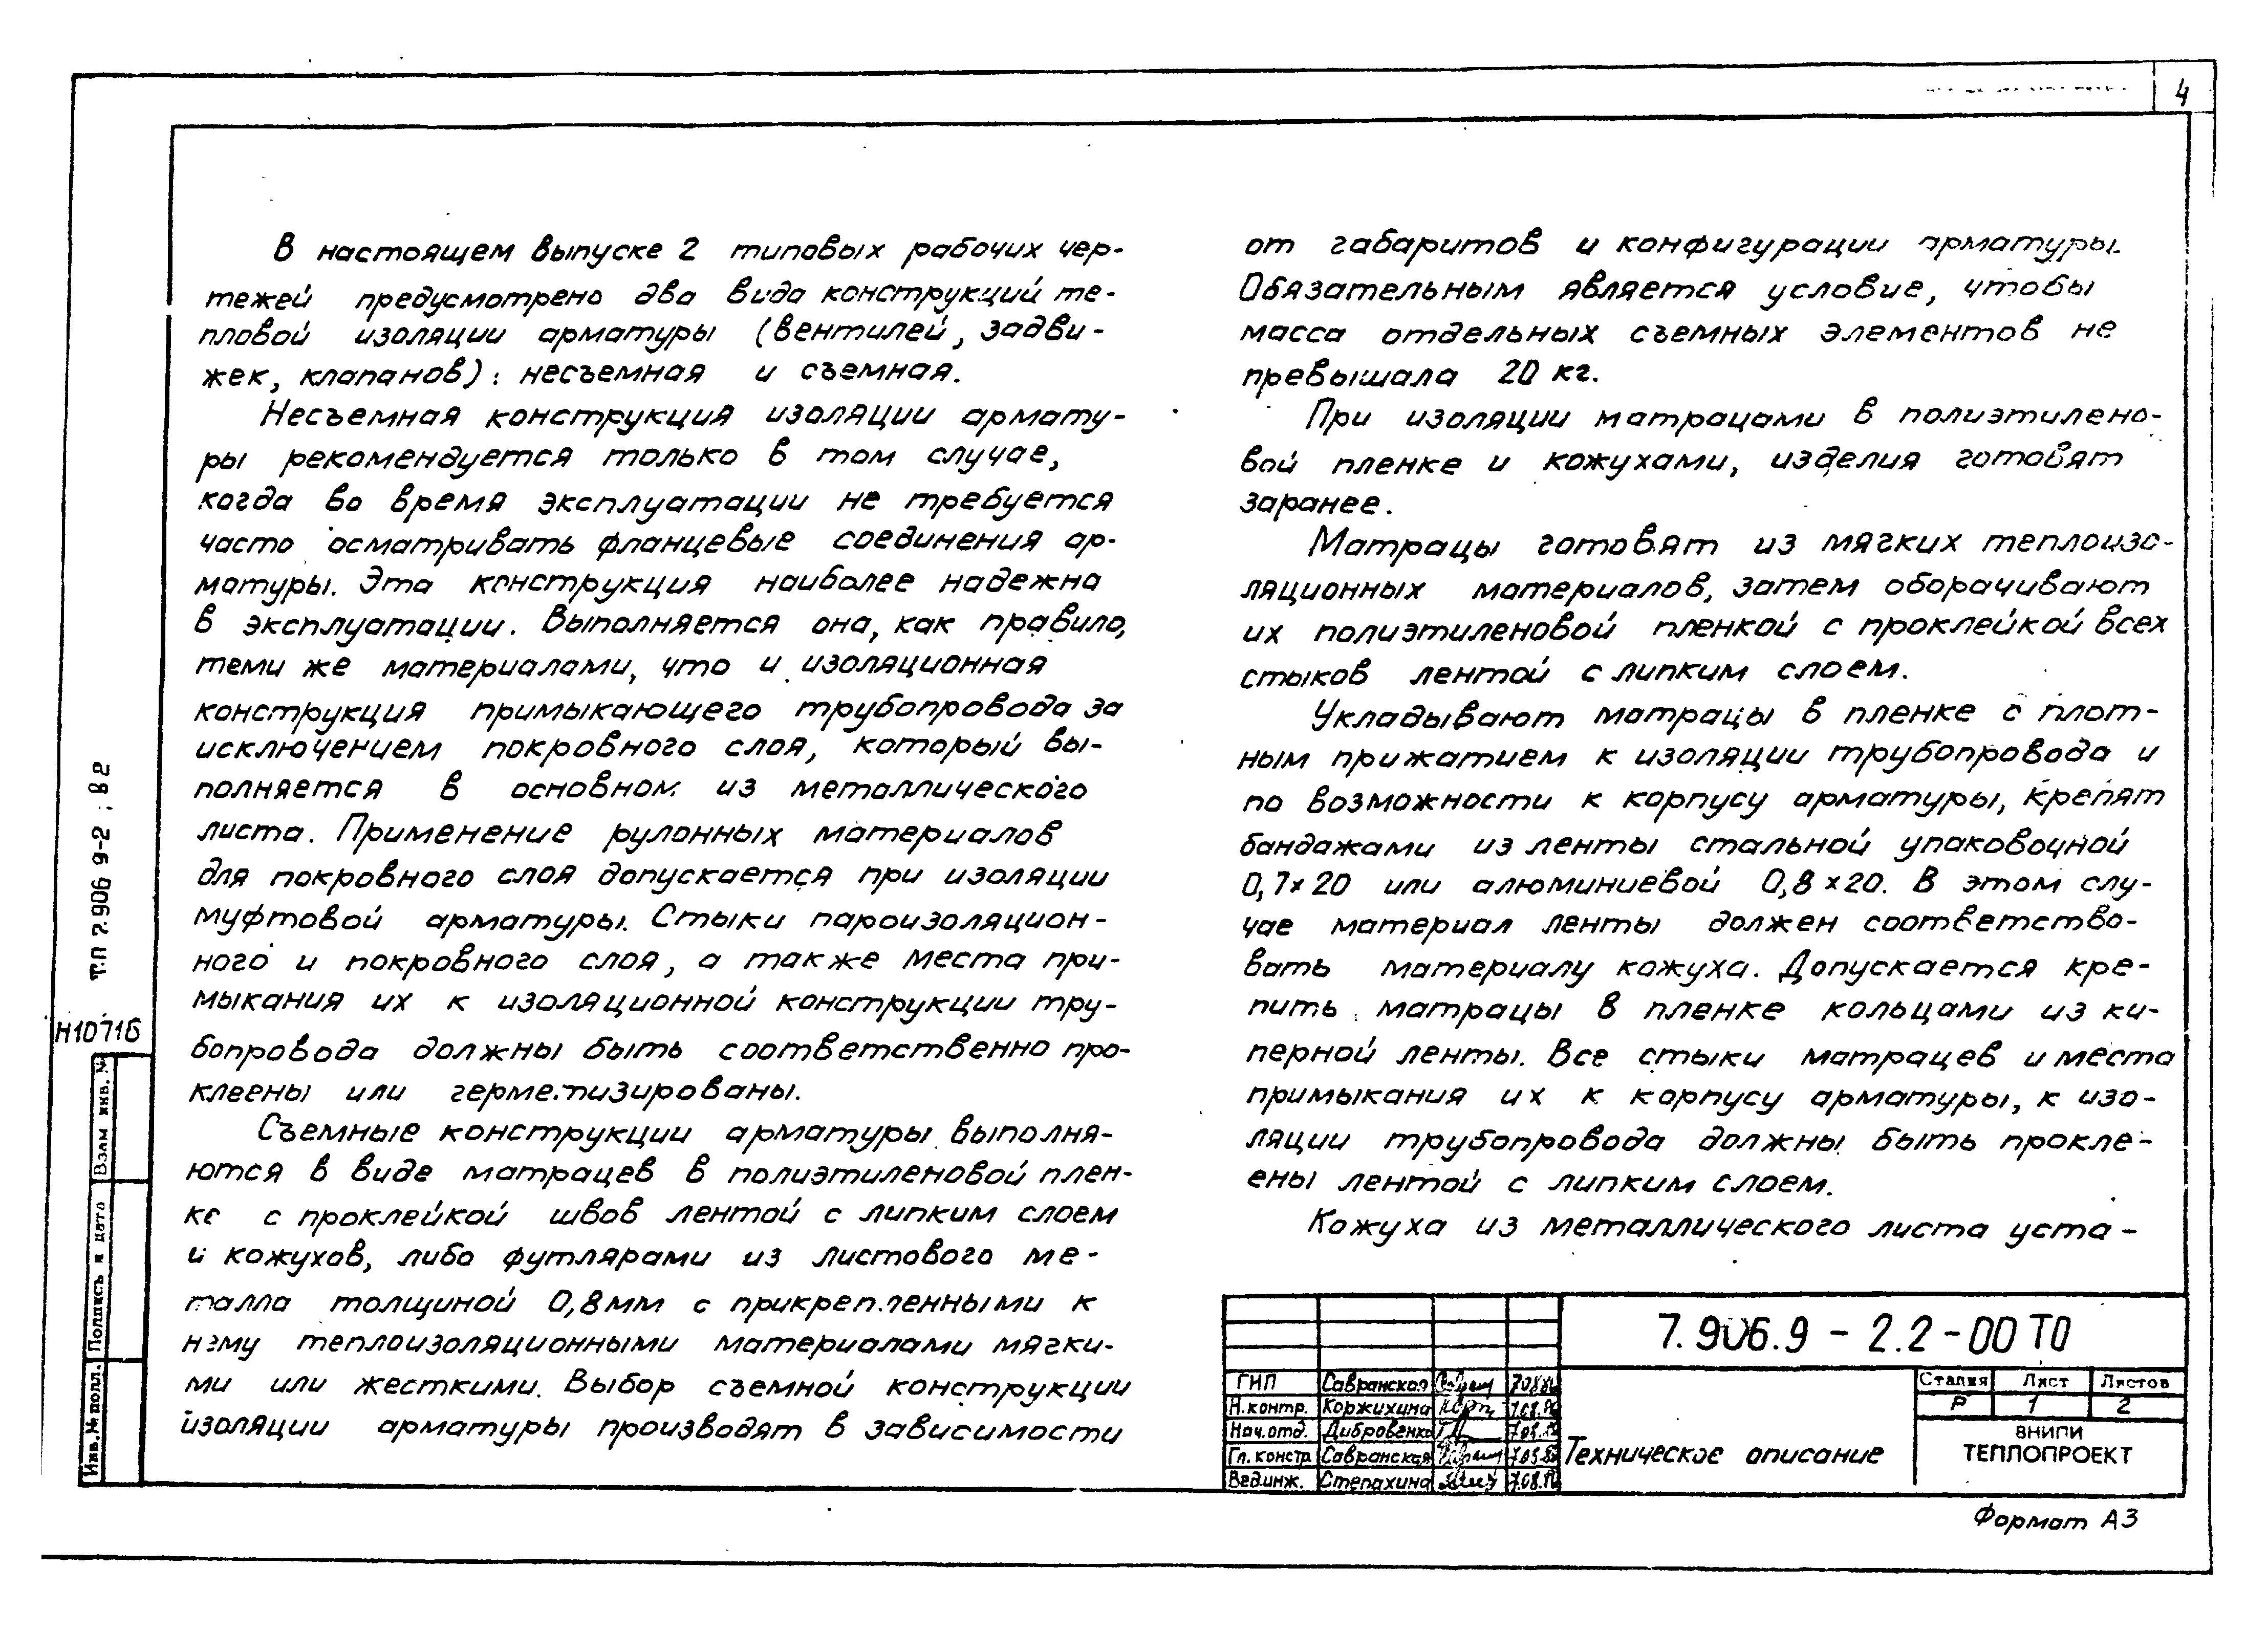 4
В настоящем выпуске 2 типовых рабочих чер-
тежей предусмотрено два вида конструкций те-
пловой изоляции арматуры (вентилей, задви-
жек, клапанов): несъемная и съемная.
Несъемная конструкция изоляции армату-
ры рекомендуется только в том случае,
когда во время эксплуатации не требуется
часто осматривать фланцевые соединения ар-
матуры. Эта конструкция наиболее надежна
в эксплуатации. Выполняется она, как правило,
теми же материалами, что и изоляционная
конструкция примыкающего трубопровода за
исключением покровного слоя, который вы-
полняется в основном из металлического
листа. Применение рулонных материалов
для покровного слоя допускается при изоляции
муфтовой арматуры. Стыки пароизоляцион-
ного и покровного слоя, а также места при-
мыкания их к изоляционной конструкции тру-
бопровода должны быть соответственно про-
клеены или герметизированы.
Съемные конструкции арматуры выполня-
ются в виде матрацев в полиэтиленовой плен-
ке с проклейкой швов лентой с липким слоем
и кожухов, либо футлярами из листового ме-
талла толщиной 0,8мм с прикрепленными к
нему теплоизоляционными материалами мягки-
ми или жесткими. Выбор съемной конструкции
изоляции арматуры производят в зависимости
от габаритов и конфигурации арматуры.
Обязательным является условие, чтобы
масса отдельных съемных элементов не
превышала 20 кг.
При изоляции матрацами в полиэтилено-
вой пленке и кожухами, изделия готовят
заранее.
Матрацы готовят из мягких теплоизо-
ляционных материалов, затем оборачивают
их полиэтиленовой пленкой с проклейкой всех
стыков лентой с липким слоем.
Укладывают матрацы в пленке с плот-
ным прижатием к изоляции трубопровода и
по возможности к корпусу арматуры, крепят
бандажами из ленты стальной упаковочной
0,7×20 или алюминиевой 0,8×20. В этом слу-
чае материал ленты должен соответство-
вать материалу кожуха. Допускается кре-
пить матрацы в пленке кольцами из ки-
перной ленты. Все стыки матрацев и места
примыкания их к корпусу арматуры, к изо-
ляции трубопровода должны быть прокле-
ены лентой с липким слоем.
Кожуха из металлического листа уста-
Т.П 7.906 9-2 . В 2
Н10716
Взам инв. №
Подпись и дата
Инв.№ подл.
7.906.9 - 2.2-00 ТО
ГИП Савранская
Н.контр. Коржихина
Нач.отд. Дибровенко
Гл. констр Савранская
Вед.инж. Степахина
Техническое описание
Стадия Лист Листов
Р 1 2
ВНИПИ
ТЕПЛОПРОЕКТ
Формат А3